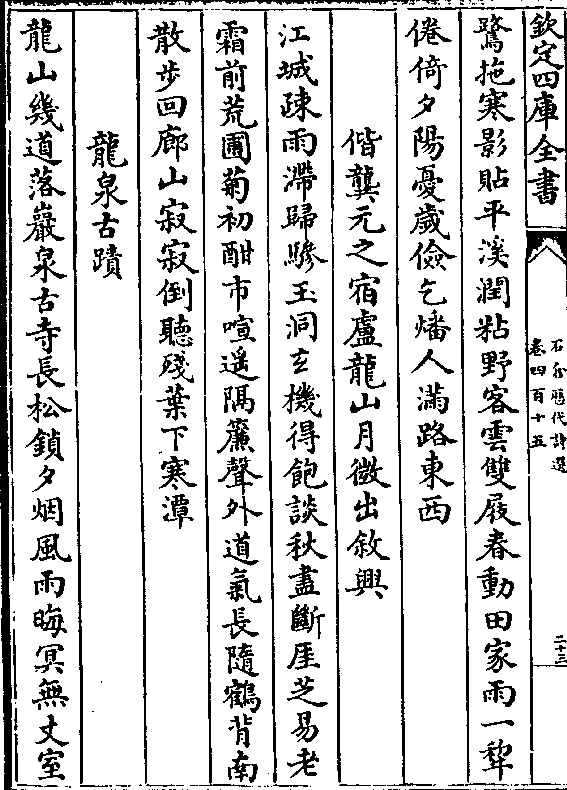 欽定四庫全書
石倉歷代詩選
卷四百十五
二十三
鷺拖寒影貼平溪潤粘野客雲雙屐春動田家雨一犂
倦倚夕陽憂歲儉乞燔人滿路東西
偕龔元之宿盧龍山月微出敘興
江城疎雨滯歸驂玉洞𤣥機得飽談秋盡斷厓芝易老
霜前荒圃菊初酣市喧遥隔簾聲外道氣長隨鶴背南
散步回廊山寂寂倒聽殘葉下寒潭
龍泉古蹟
龍山幾道落巖泉古寺長松鎖夕烟風雨晦冥無丈室